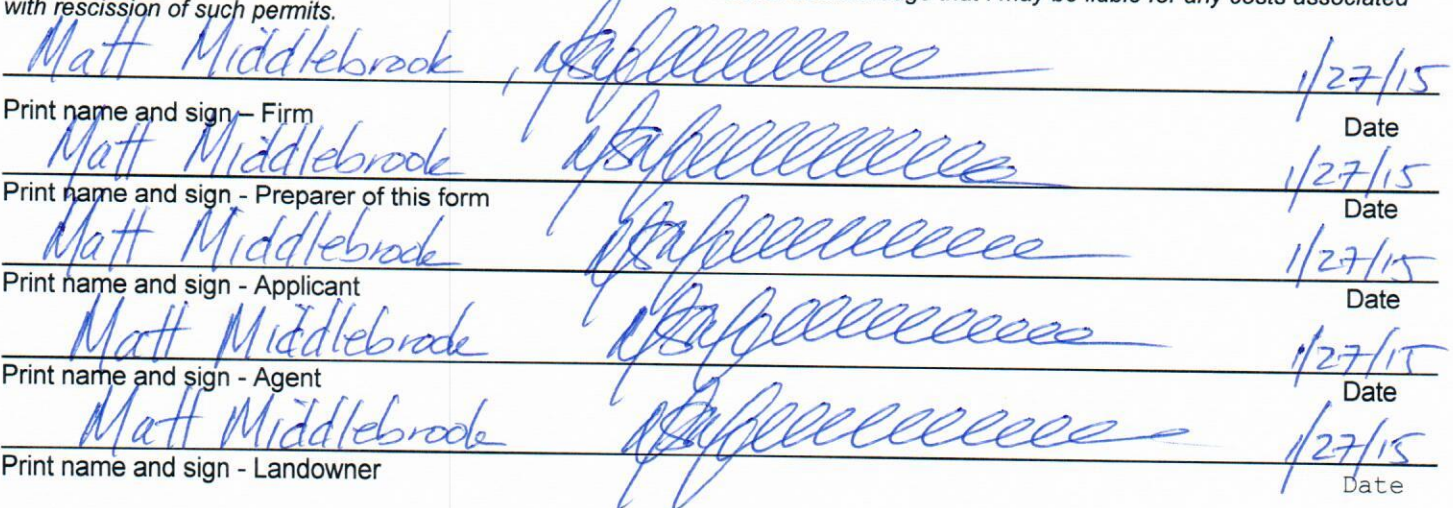 with rescission of such permits. may be liable for any costs associated
Matt Middlebrook, 1/27/15
Print name and sign – Firm Date
Matt Middlebrook 1/27/15
Print name and sign - Preparer of this form Date
Matt Middlebrook 1/27/15
Print name and sign - Applicant Date
Matt Middlebrook 1/27/15
Print name and sign - Agent Date
Matt Middlebrook 1/27/15
Print name and sign - Landowner Date